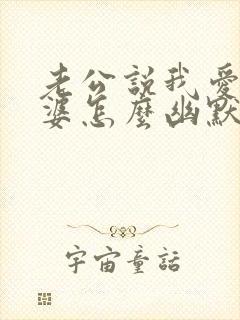 老公說我愛
婆怎麼幽默
宇宙童話